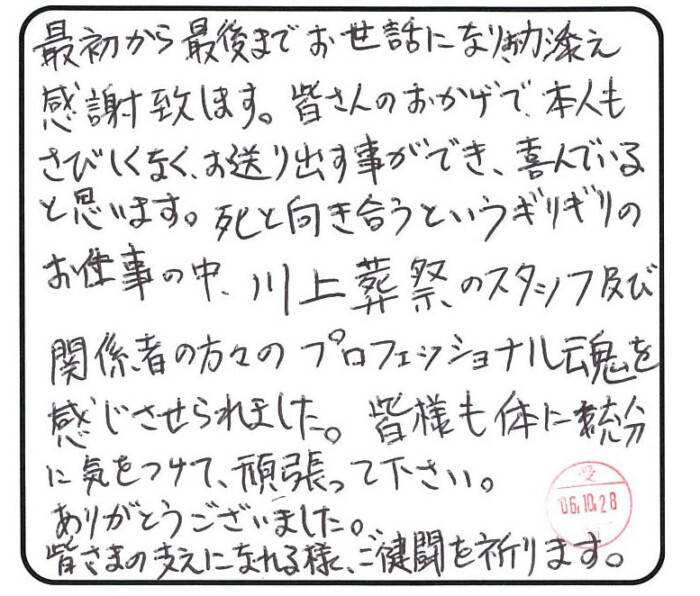 最初から最後までお世話になりお力添え
感謝致します。皆さんのおかげで、本人も
さびしくなく、お送り出す事ができ、喜んでいる
と思います。死と向き合うというギリギリの
お仕事の中、川上葬祭のスタッフ及び
関係者の方々のプロフェッショナル魂を
感じさせられました。皆様も体に充分
に気をつけて、頑張って下さい。
ありがとうございました。
皆さまの支えになれる様、ご健闘を祈ります。
受
'06.10.28